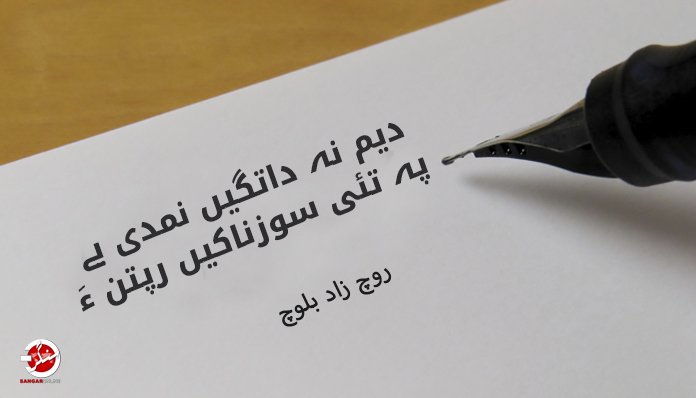 دیم نہ داتگیں نمدی لے
پہ تئی سوزناکیں رپتن ءَ
روچ زاد بلوچ
SANGAR